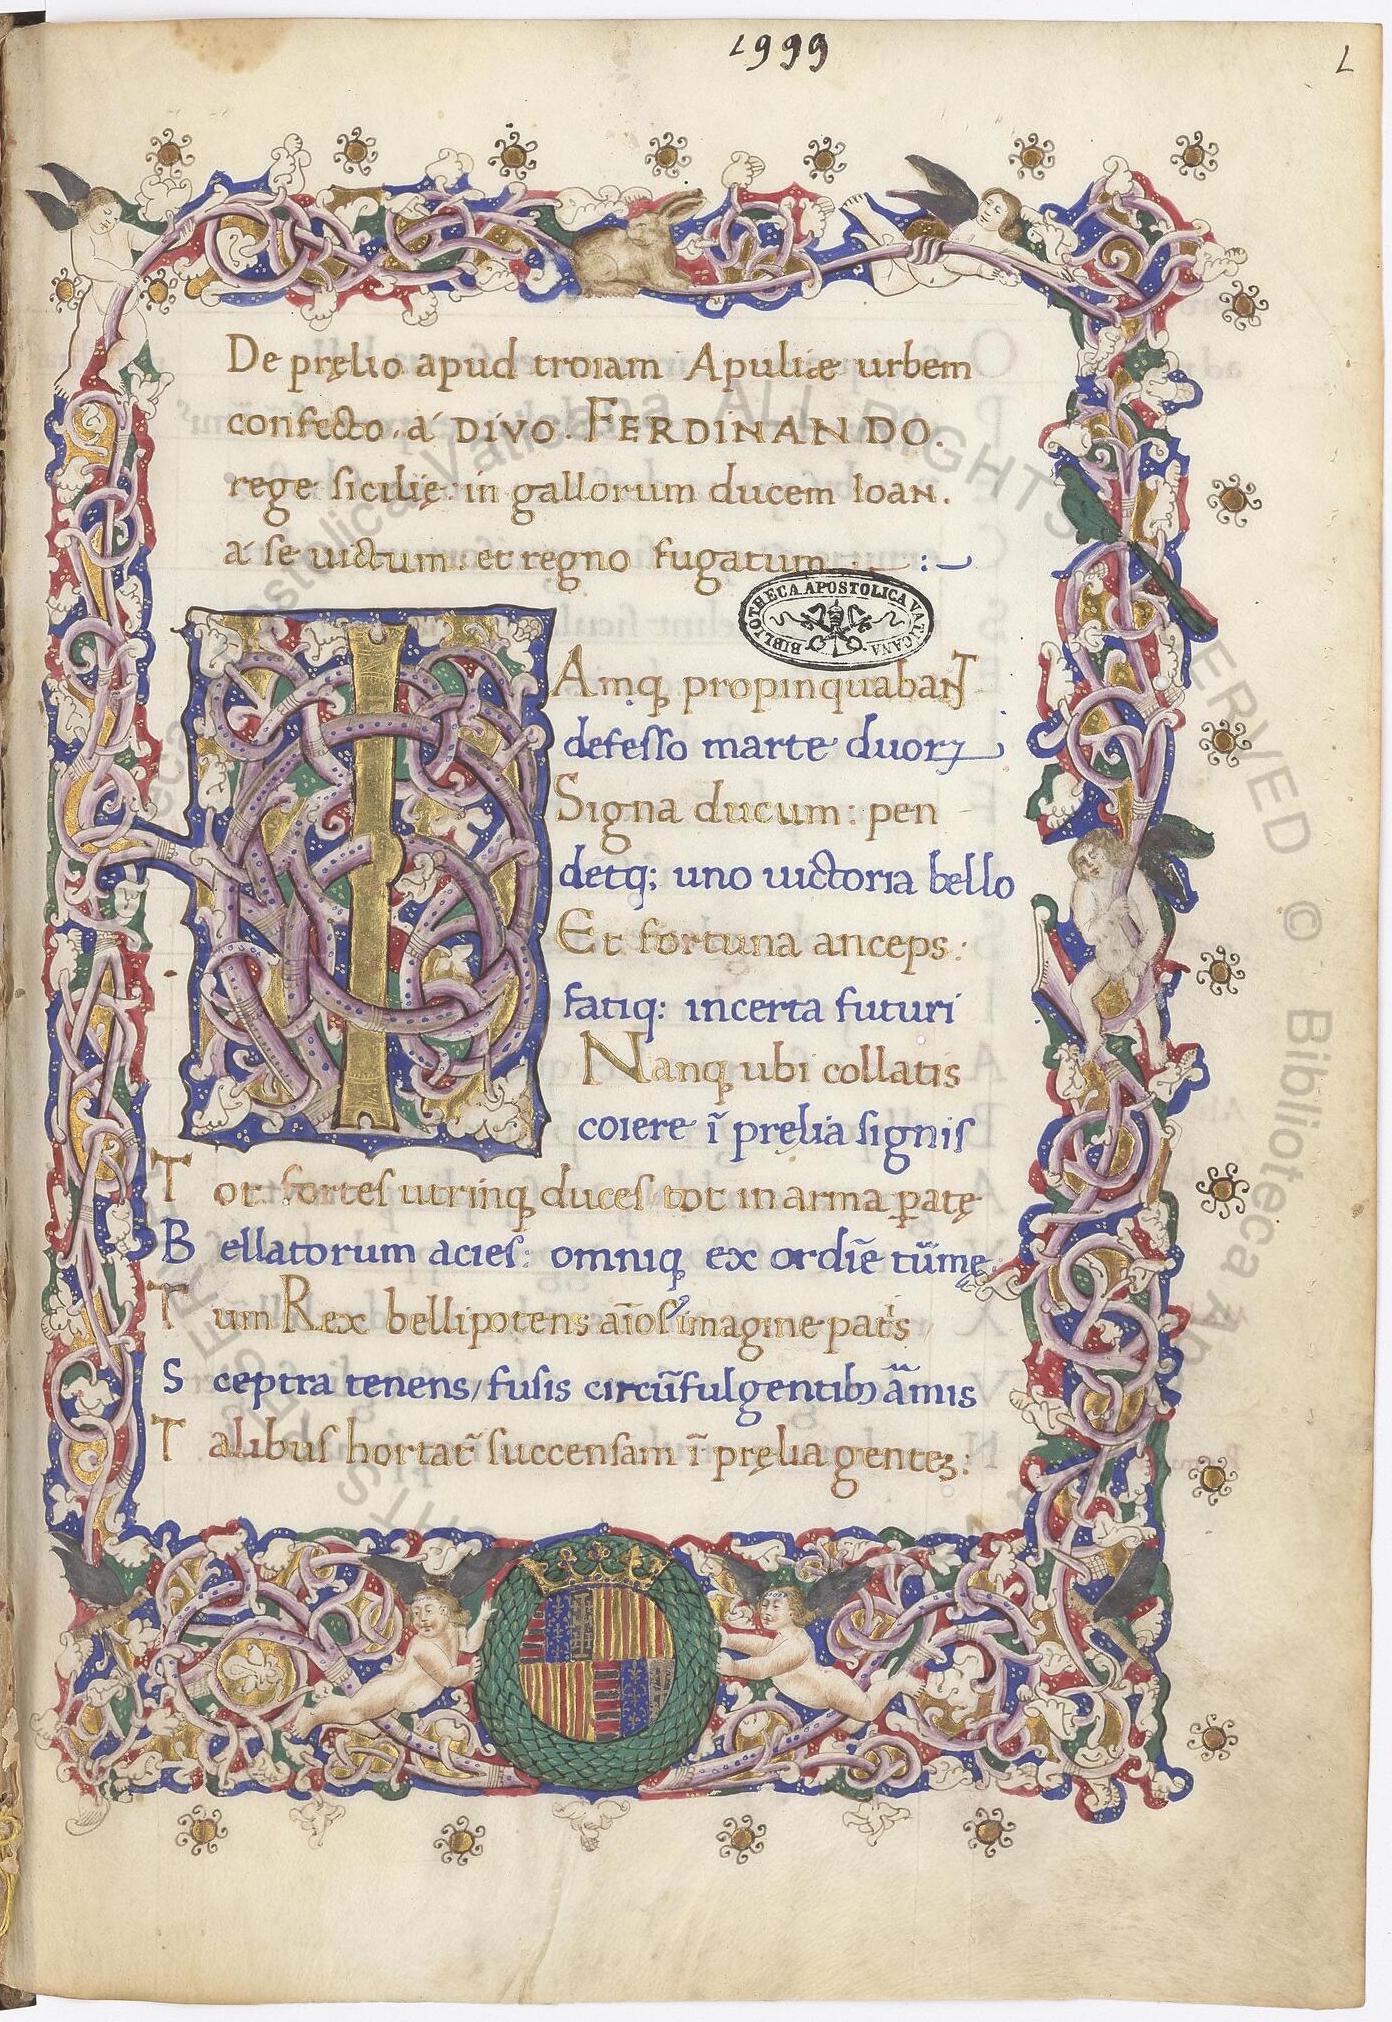 1999
1
De pręlio apud troiam Apuliæ urbem
confecto . á DIVO . FERDINANDO .
rege sicilię : in gallorum ducem Ioan .
á se uictum : et regno fugatum :
BIBLIOTHECA APOSTOLICA VATICANA
I Amqꝫ propinquabant
defesso marte duoꝝ
Signa ducum : pen
detqꝫ; uno uictoria bello
Et fortuna anceps :
fatiqꝫ: incerta futuri
Nanqꝫ ubi collatis
coiere ī pręlia signis
Tot fortes utrinqꝫ duces tot in arma ꝑatę
Bellatorum acies : omniqꝫ ex ordīe tūmę
Tum Rex bellipotens aīos imagine patͥs
Sceptra tenens / fusis circūfulgentibꝫ āmis
Talibus hortat̃ succensam ī pręlia genteꝫ :
ALL RIGHTS RESERVED © Biblioteca Ap